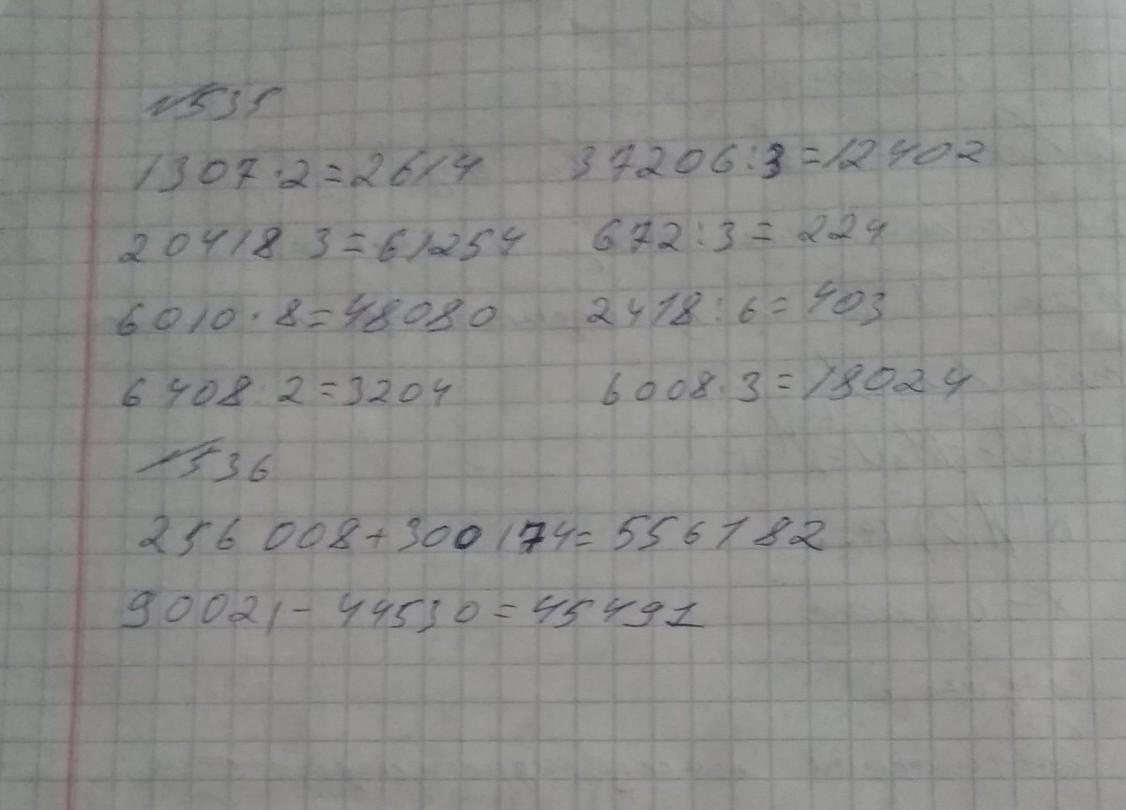 №535
1307·2=2614 37206:3=12402
20418·3=61254 672:3=224
6010·8=48080 2418:6=403
6408:2=3204 6008·3=18024
№536
256 008+300174=556182
90021-44530=45491